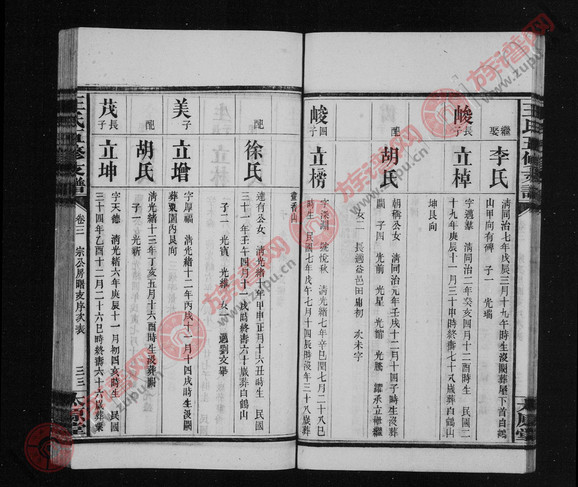 王氏五修支譜
繼娶 李氏
清同治七年戊辰三月十九午時生沒葬屋下首白鶴
山甲向有碑 子一 光瑞
峻長子 立棹
字邁羣 清同治二年癸亥四月十二酉時生 民國二
十九年庚辰十一月三十申時終壽七十八歲葬白鶴山
坤艮向
配 胡氏
朝稿公女 清同治元年壬戌十二月十四子時生沒
闕 子四 光前 光星 光 光耀 承立
女二 長適益邑田廟初 次未字
峻四子 立楊
字深湖 號悅秋 清光緒七年辛巳閏七月二十八
時生 民國七年戊午七月十四辰時沒年三十八歲葬
畫香山
配 徐氏
連有公女 清光緒十年甲申正月十六丑時生 民國
三十一年壬午四月十六時終壽六十歲葬白鶴山
子二 光貴 光維 女一 適劉文畢
美子 立增
字厚福 清光緒十二年丙戌十一月十四戌時生沒闕
葬艮向
配 胡氏
清光緒十三年丁亥五月十六酉時生沒葬闕
子一 光新
茂長子 立坤
字天德 清光緒六年庚辰十一月初四亥時生 民國
三十四年乙酉十二月二十六巳時終壽六十六歲葬
王氏五修支譜 卷三 宗公房曙支序次表 三三 太原堂
族谱网
www.zupu.cn